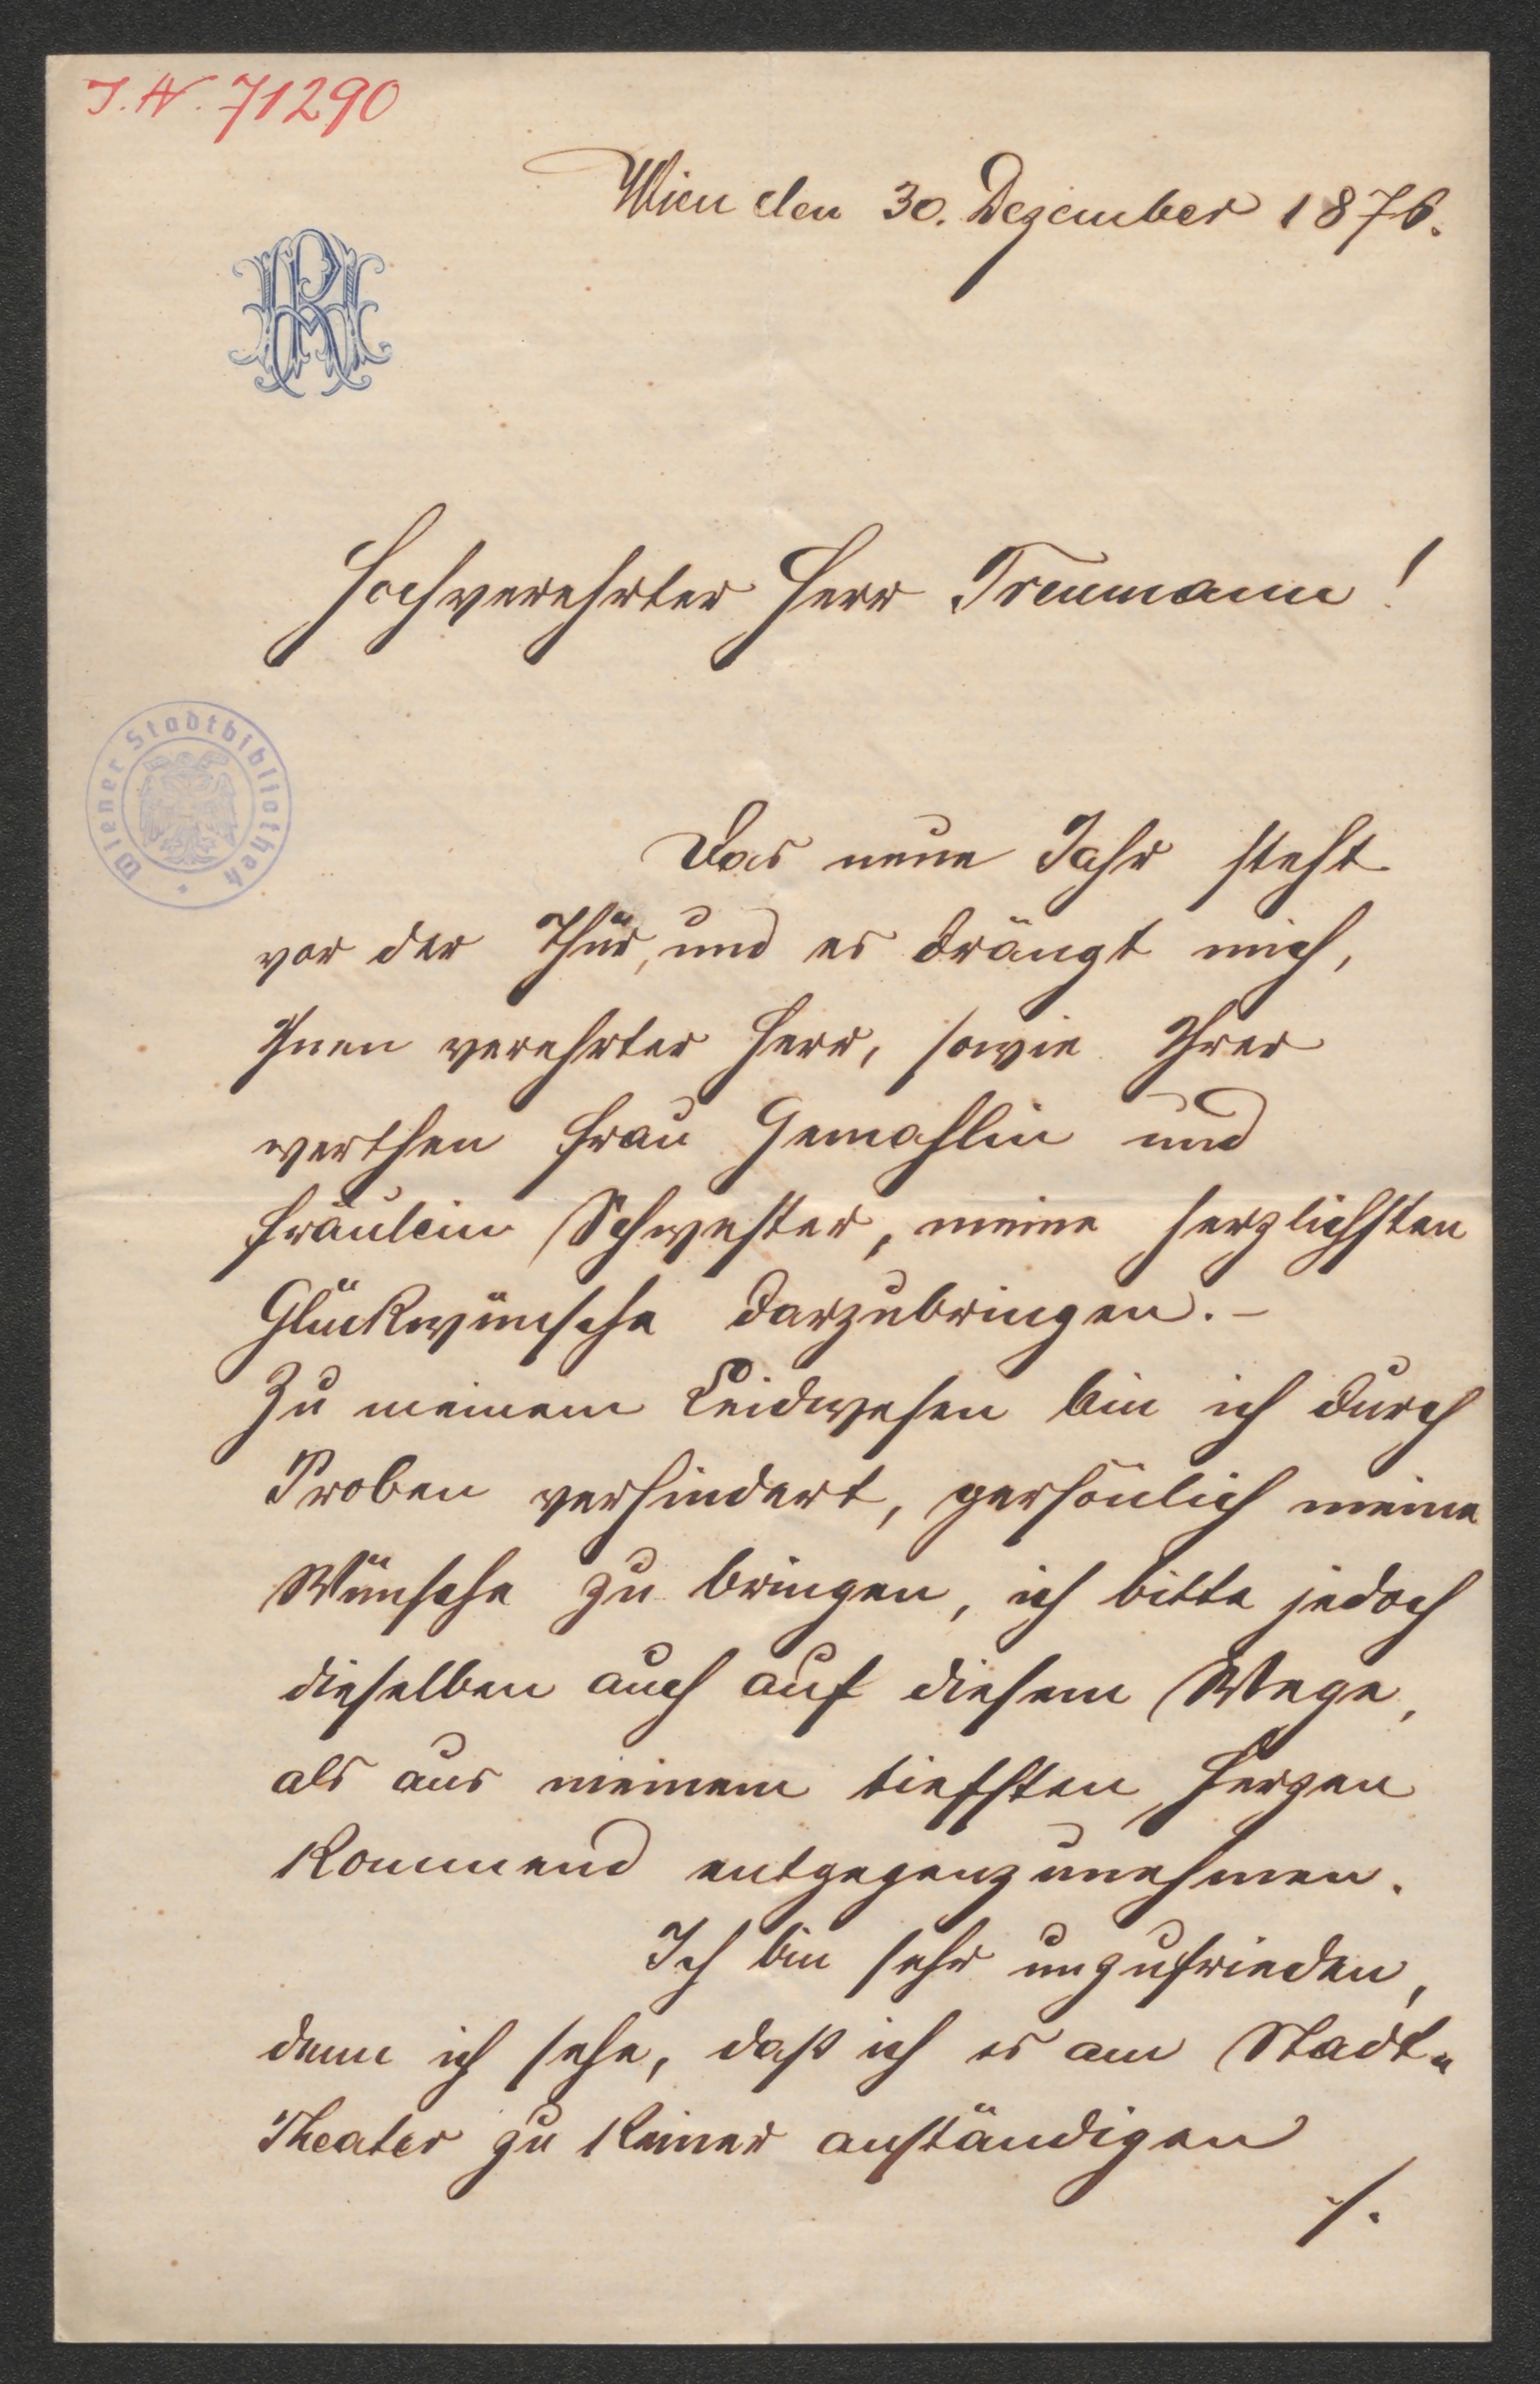 J.N. 71290
Wien den 30. Dezember 1876.
RH
Hochverehrter Herr Treumann!
Wiener Stadtbibliothek
Das neue Jahr steht
vor der Thür, und es drängt mich,
Ihnen verehrter Herr, sowie Ihrer
werthen Frau Gemahlin und
Fräulein Schwester, meine herzlichsten
Glückwünsche darzubringen. –
Zu meinem Leidwesen bin ich durch
Proben verhindert, persönlich meine
Wünsche zu bringen, ich bitte jedoch
dieselben auch auf diesem Wege,
als aus meinem tiefsten Herzen
kommend entgegenzunehmen.
Ich bin sehr unzufrieden,
denn ich sehe, daß ich es am Stadt-
Theater zu keiner anständigen
./.